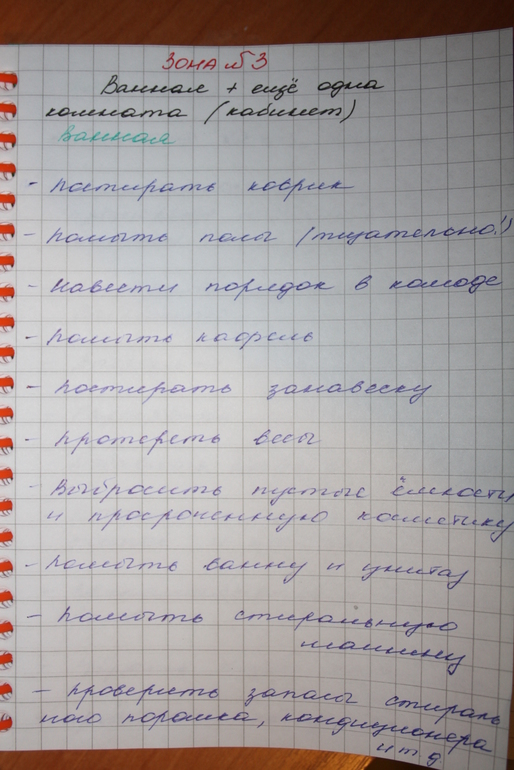 Зона №3
Ванная + ещё одна
комната (кабинет)
Ванная
- постирать коврик
- помыть полы (тщательно!)
- навести порядок в комоде
- помыть кафель
- постирать занавеску
- протереть весы
- Выбросить пустые ёмкости
и просроченную косметику
- помыть ванну и унитаз
- помыть стиральную
машину
- проверить запасы стираль
ного порошка, кондиционера
и т д.